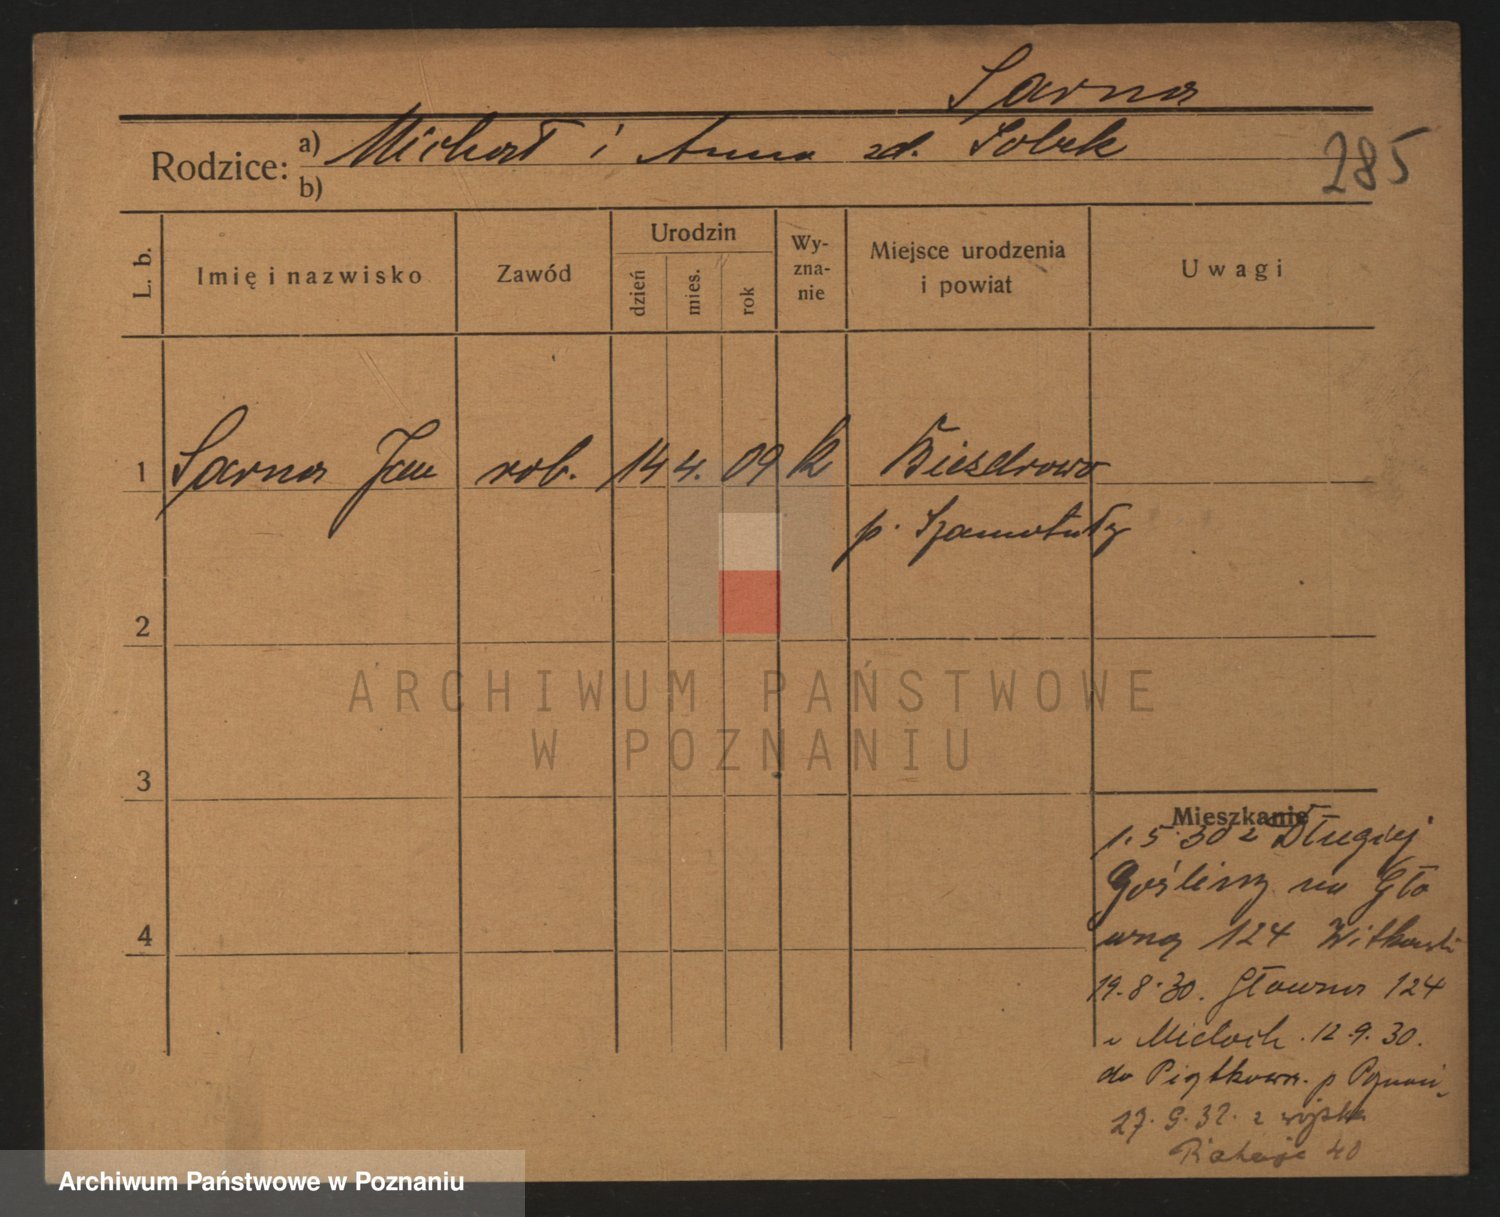 Sarna
Rodzice: a) Michał i Anna zd. Sobek
b)
285
L. b.
Imię i nazwisko
Zawód
Urodzin
dzień
mies.
rok
Wy-
zna-
nie
Miejsce urodzenia
i powiat
Uwagi
1 Sarna Jan rob. 14 4. 09 k Biezdrowo
p. Szamotuły
2
3
4
ARCHIWUM PAŃSTWOWE
W POZNANIU
Mieszkanie
1.5.30 z Długiej
Gośliny na Głó
wną 124 Witkowski
19.8.30. Główna 124
u Mieloch. 12.9.30.
do Piątkowa. p Poznań
27.9.32. z wojska
40
Archiwum Państwowe w Poznaniu